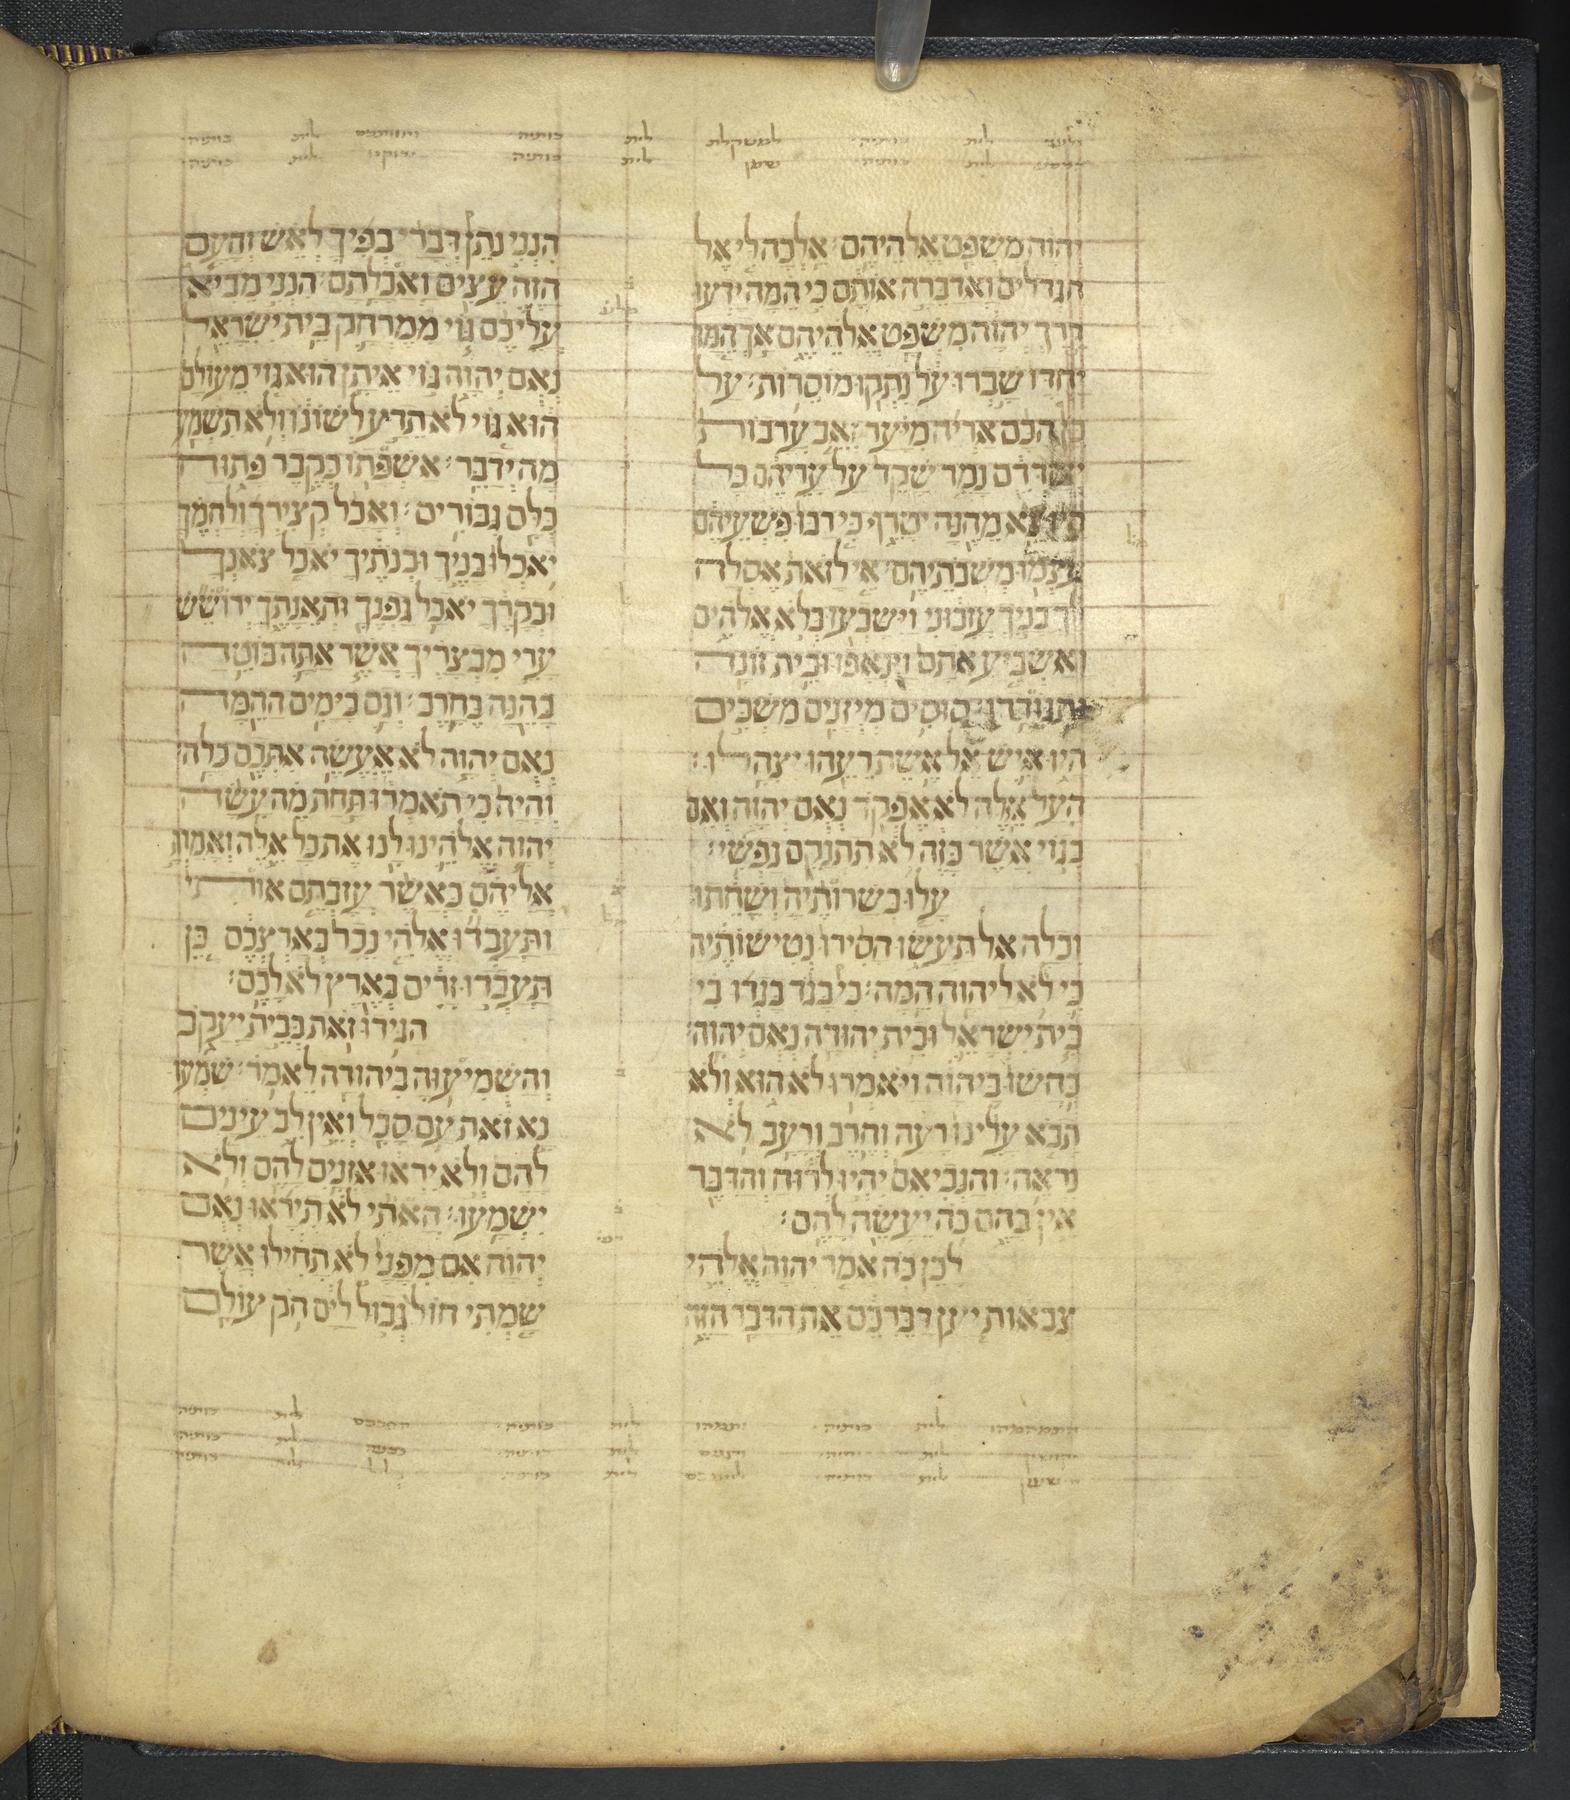 יהוה משפט אלהיהם׃ אלכה לי אל
הגדלים ואדברה אותם כי המה ידעו
דרך יהוה משפט אלהיהם אך המה
יחדו שברו על נתקו מוסרות׃ על
כן הכם אריה מיער זאב ערבות
ישדדם נמר שקד על עריהם כל
היוצא מהנה יטרף כי רבו פשעיהם
עצמו משבתיהם׃ אי לזאת אסלח
לך בניך עזבוני וישבעו בלא אלהים
ואשביע אתם וינאפו ובית זונה
יתגודדו׃ סוסים מיזנים משכים
היו איש אל אשת רעהו יצהלו׃
העל אלה לא אפקד נאם יהוה ואם
בגוי אשר כזה לא תתנקם נפשי׃
עלו בשרותיה ושחתו
וכלה אל תעשו הסירו נטישותיה
כי לא ליהוה המה׃ כי בגד בגדו בי
בית ישראל ובית יהודה נאם יהוה׃
כחשו ביהוה ויאמרו לא הוא ולא
תבא עלינו רעה וחרב ורעב לא
נראה׃ והנביאם יהיו לרוח והדבר
אין בהם כה יעשה להם׃
לכן כה אמר יהוה אלהי
צבאות יען דברכם את הדבר הזה
הנני נתן דברי בפיך לאש והעם
הזה עצים ואכלתם׃ הנני מביא
עליכם גוי ממרחק בית ישראל
נאם יהוה גוי איתן הוא גוי מעולם
הוא גוי לא תדע לשונו ולא תשמע
מה ידבר׃ אשפתו כקבר פתוח
כלם גבורים׃ ואכל קצירך ולחמך
יאכלו בניך ובנתיך יאכל צאנך
ובקרך יאכל גפנך ותאנתך ירושש
ערי מבצריך אשר אתה בוטח
בהנה בחרב׃ וגם בימים ההמה
נאם יהוה לא אעשה אתכם כלה׃
והיה כי תאמרו תחת מה עשה
יהוה אלהינו לנו את כל אלה ואמרת
אליהם כאשר עזבתם אותי
ותעבדו אלהי נכר בארצכם כן
תעבדו זרים בארץ לא לכם׃
הגידו זאת בבית יעקב
והשמיעוה ביהודה לאמר׃ שמעו
נא זאת עם סכל ואין לב עינים
להם ולא יראו אזנים להם ולא
ישמעו׃ האתי לא תיראו נאם
יהוה אם מפני לא תחילו אשר
שמתי חול גבול לים חק עולם